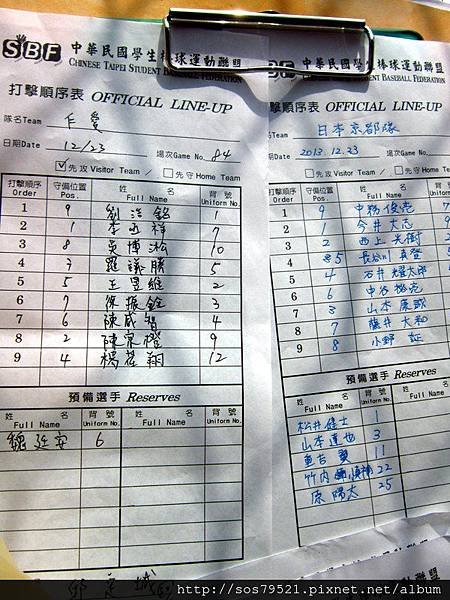 SBF 中華民國學生棒球運動聯盟
CHINESE TAIPEI STUDENT BASEBALL FEDERATION
打擊順序表 OFFICIAL LINE-UP
隊名Team 仁愛
日期Date 12/23 場次Game No. 84
先攻 Visitor Team / 先守 Home Team
打擊順序 Order 守備位置 Pos. 姓名 Full Name 背號 Uniform No.
1 9 1
2 1 李 祥 7
3 8 吳博淞 10
4 3 羅議勝 5
5 5 王昱維 2
6 7 振銓 3
7 6 陳威智 4
8 2 陳 9
9 4 楊 翔 12
預備選手 Reserves
姓名 Full Name 背號 Uniform No.
魏廷安 6
中華民國學生棒球運動聯盟
CHINESE TAIPEI STUDENT BASEBALL FEDERATION
打擊順序表 OFFICIAL LINE-UP
隊名Team 日本京都隊
日期Date 2013.12.23 場次Game No.
先攻 Visitor Team / 先守 Home
打擊順序 Order 守備位置 Pos. 姓名 Full Name 背 Unifor
1 9 中務俊壱
2 1 今井大志 9
3 2 西上
4 5 長谷川 真登
5 4 石井耀太郎
6 6 中谷
7 3 山本
8 7 藤井大和
9 8 小野
預備選手 Reserves
姓名 Full Name 背號 Uniform No.
松井 士 1
山本達也 3
重吉 翼 11
竹内 22
原陽太 25
http://sos79521.pixnet.net/album